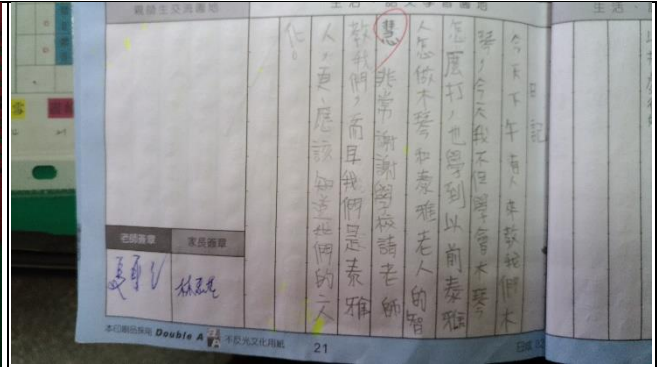 親師生交流園地
生活
日記
今天下午有人來教我們木
琴，今天我不但學會木琴
怎麼打，也學到以前泰雅
人怎做木琴和泰雅老人的智
慧。非常謝謝學校請老師
教我們，而且我們是泰雅
人，更應該知道我們的文
化。
老師簽章
家長簽章
本印刷品採用 Double A 不反光文化用紙
21